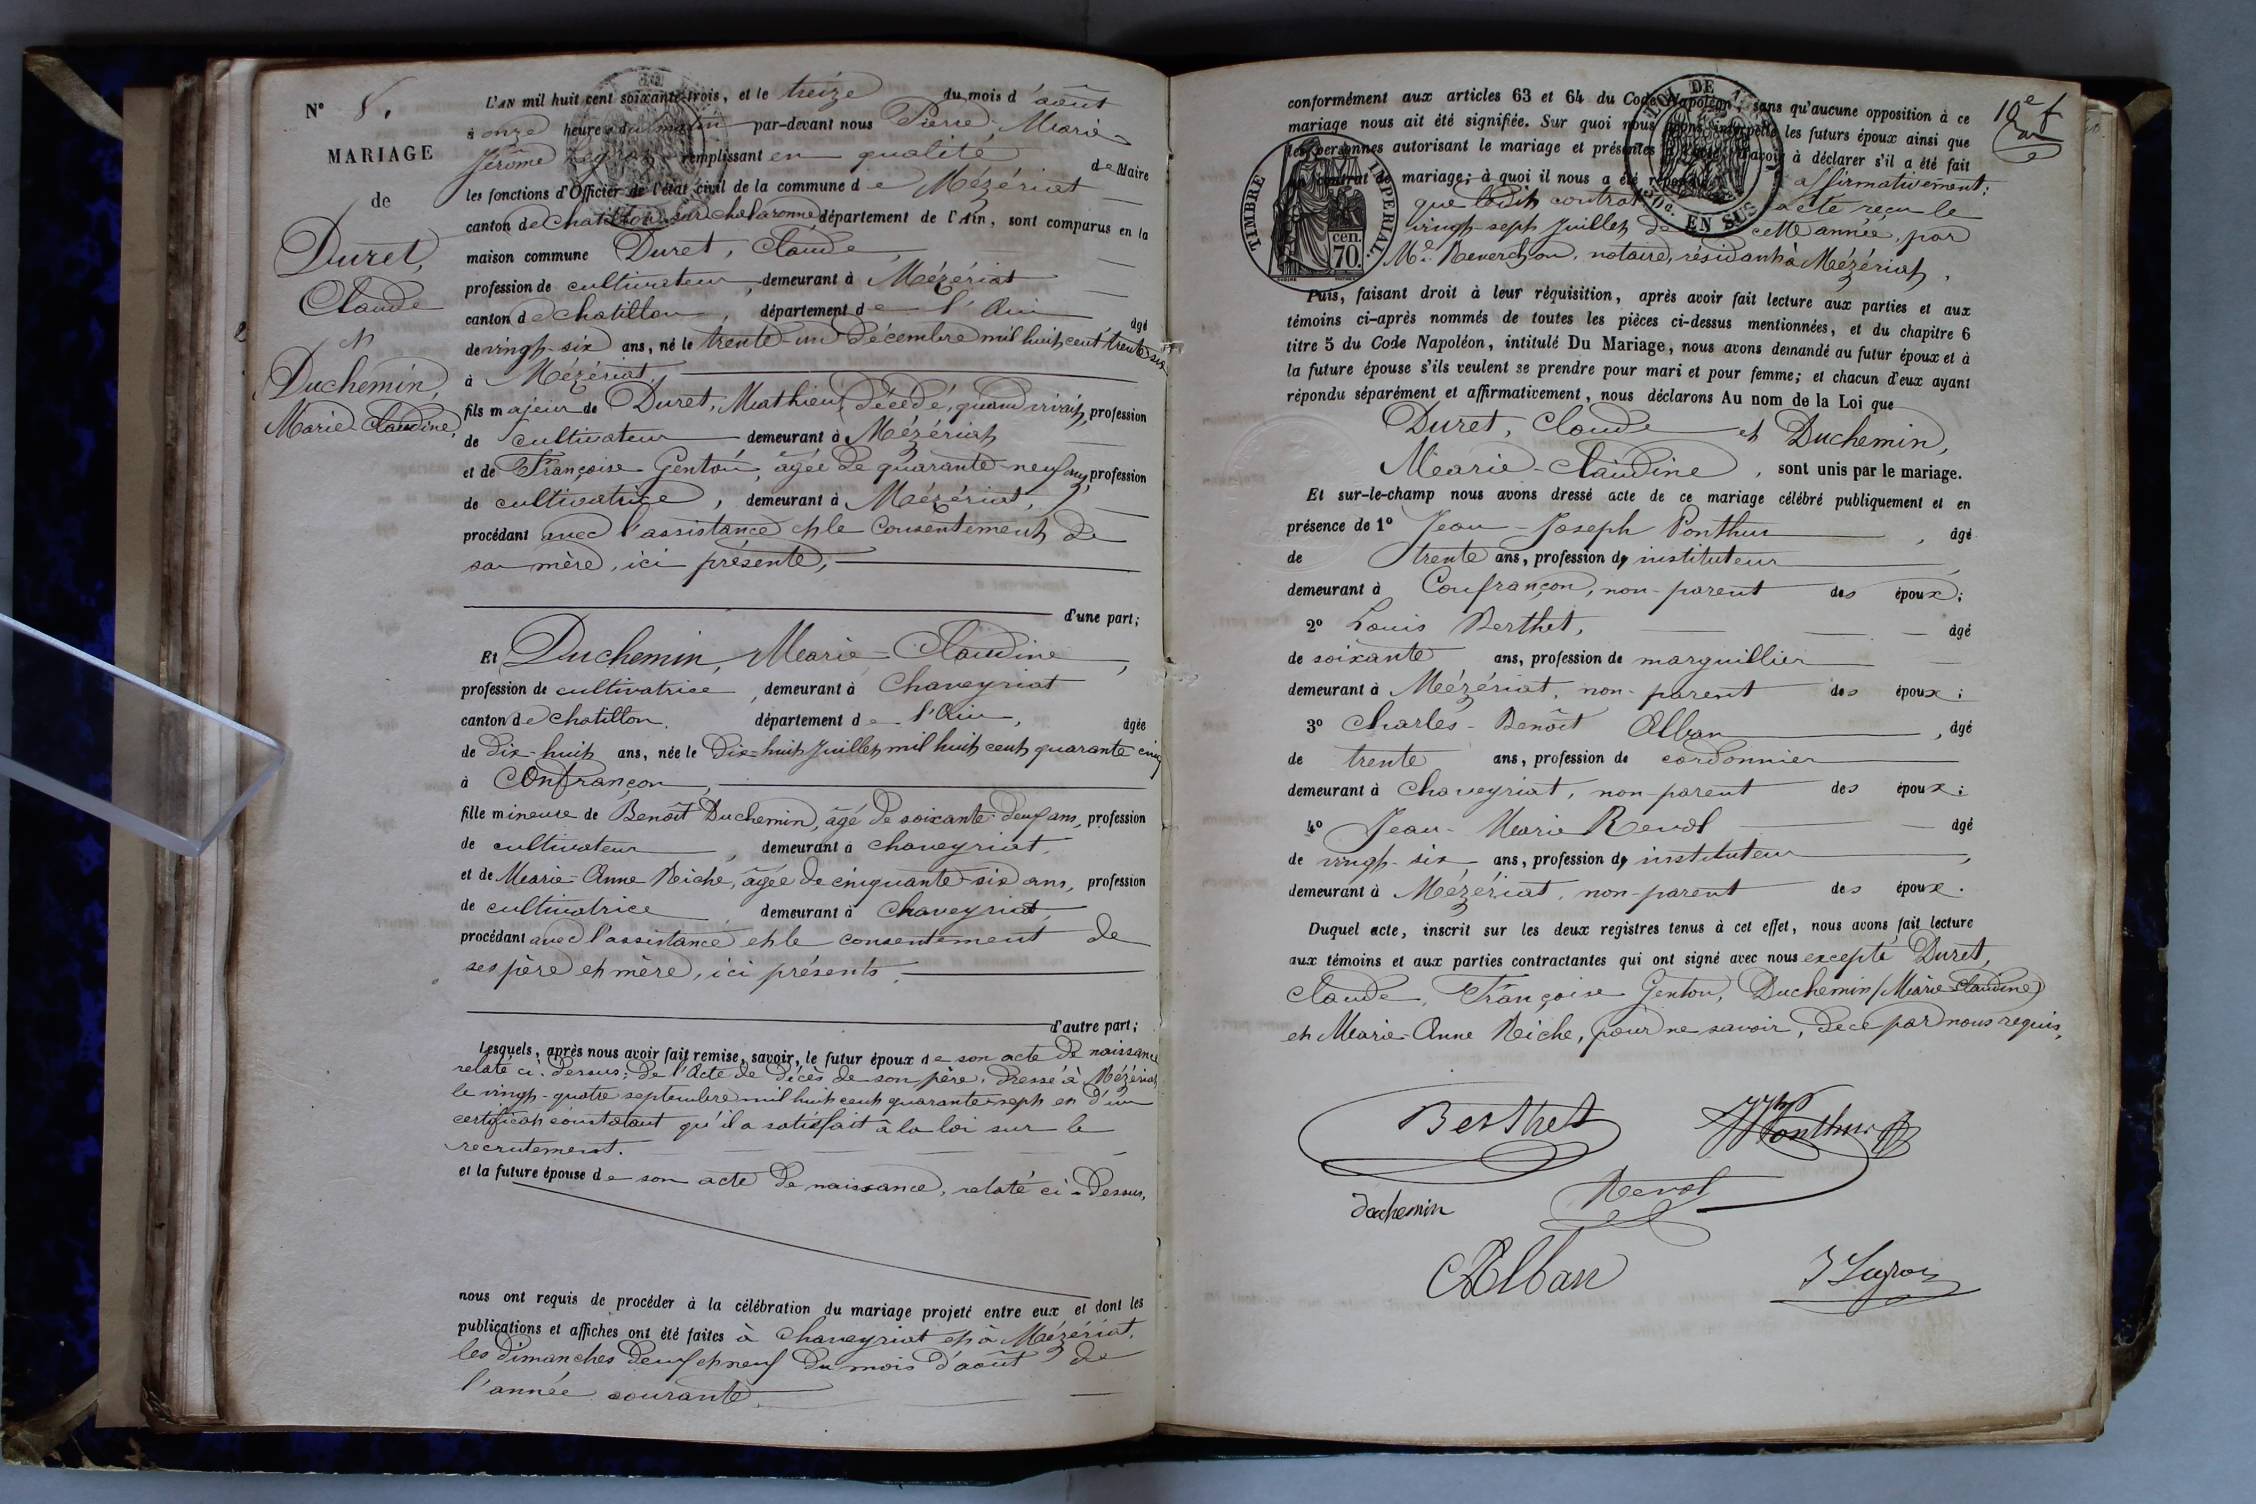 N° 8.
MARIAGE
de
Duret,
Claude
et
Duchemin,
Marie-Claudine.
L'AN mil huit cent soixante-trois, et le treize du mois d'août
à onze heures du matin par-devant nous Pierre, Marie-
Jérôme remplissant en qualité de Maire
les fonctions d'Officier de l'état civil de la commune de Mézériat
canton de Chatillon sur chalaronne département de l'Ain, sont comparus en la
maison commune Duret, Claude,
profession de cultivateur, demeurant à Mézériat
canton de chatillon, département de l'Ain âgé
de vingt-six ans, né le trente-un décembre mil huit cent trente-six
à Mézériat.
fils majeur de Duret, Mathieu, décédé, quand vivait, profession
de cultivateur demeurant à Mézériat
et de Françoise Genton, âgée de quarante-neuf ans, profession
de cultivatrice, demeurant à Mézériat,
procédant avec l'assistance et le consentement de
sa mère, ici présente;
d'une part;
Et Duchemin, Marie-Claudine,
profession de cultivatrice, demeurant à Chaveyriat
canton de chatillon. département de l'Ain, âgée
de dix-huit ans, née le dix-huit juillet mil huit cent quarante cinq
à Confrançon,
fille mineure de Benoît Duchemin, âgé de soixante-deux ans, profession
de cultivateur, demeurant à chaveyriat.
et de Marie-Anne Reiche, âgée de cinquante-six ans, profession
de cultivatrice, demeurant à Chaveyriat,
procédant avec l'assistance et le consentement de
ses père et mère, ici présents.
d'autre part;
Lesquels, après nous avoir fait remise, savoir, le futur époux de son acte de naissance
relaté ci-dessus; de l'acte de décès de son père, dressé à Mézériat
le vingt-quatre septembre mil huit cent quarante-sept et d'un
certificat constatant qu'il a satisfait à la loi sur le
recrutement.
et la future épouse de son acte de naissance, relaté ci-dessus,
nous ont requis de procéder à la célébration du mariage projeté entre eux et dont les
publications et affiches ont été faites à Chaveyriat et à Mézériat,
les dimanches deux et neuf du mois d'août de
l'année courante.
10e f
conformément aux articles 63 et 64 du Code Napoléon, sans qu'aucune opposition à ce
mariage nous ait été signifiée. Sur quoi nous avons interpellé les futurs époux ainsi que
les personnes autorisant le mariage et présentes à l'acte, d'avoir à déclarer s'il a été fait
un contrat de mariage; à quoi il nous a été répondu affirmativement;
que ledit contrat a été reçu le
vingt-sept juillet de cette année, par
Me Reverchon, notaire, résidant à Mézériat.
TIMBRE IMPERIAL
cen.
70.
EN SUS
Puis, faisant droit à leur réquisition, après avoir fait lecture aux parties et aux
témoins ci-après nommés de toutes les pièces ci-dessus mentionnées, et du chapitre 6
titre 5 du Code Napoléon, intitulé Du Mariage, nous avons demandé au futur époux et à
la future épouse s'ils veulent se prendre pour mari et pour femme; et chacun d'eux ayant
répondu séparément et affirmativement, nous déclarons Au nom de la Loi que
Duret, Claude et Duchemin,
Marie-Claudine, sont unis par le mariage.
Et sur-le-champ nous avons dressé acte de ce mariage célébré publiquement et en
présence de 1° Jean-Joseph Ponthus, âgé
de trente ans, profession d'instituteur,
demeurant à Confrançon, non-parent des époux;
2° Louis Berthet, âgé
de soixante ans, profession de marguillier
demeurant à Mézériat, non-parent des époux;
3° Charles-Benoît Alban, âgé
de trente ans, profession de cordonnier
demeurant à Chaveyriat, non-parent des époux;
4° Jean-Marie Revol âgé
de vingt-six ans, profession d'instituteur,
demeurant à Mézériat, non-parent des époux.
Duquel acte, inscrit sur les deux registres tenus à cet effet, nous avons fait lecture
aux témoins et aux parties contractantes qui ont signé avec nous excepté Duret,
Claude, Françoise Genton, Duchemin (Marie-Claudine)
et Marie-Anne Reiche, pour ne savoir, de ce par nous requis.
Berthet JJph Ponthus
duchemin Revol
CAlban